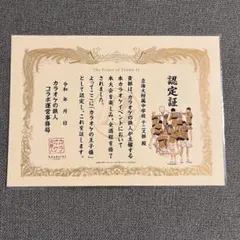 The Prince of Tennis II
認定証
立海大附属中学校 テニス部 殿
貴殿は、カラオケの鉄人が主催する
本カラオケイベントにおいて
本大会を楽しみ、全過程を修了
されました。
よってここに「カラオケの王子様」
として認定し、これを証します。
令和 年 月 日
カラオケの鉄人
コラボ運営事務局